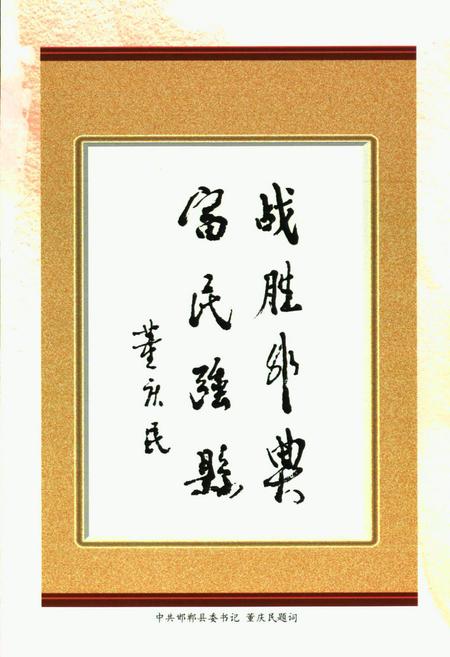 战胜非典
富民强縣
董庆民
中共邯郸县委书记 董庆民题词